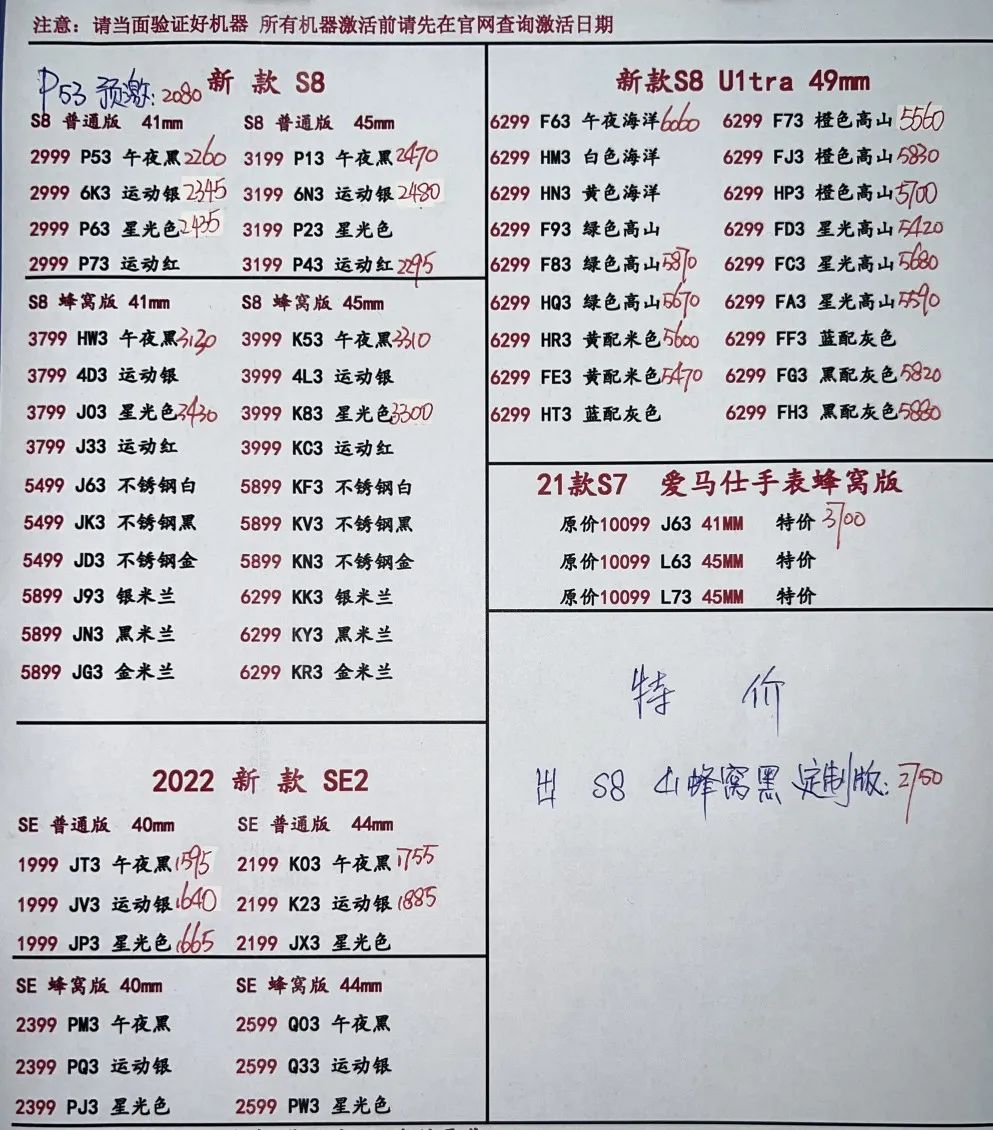 注意：请当面验证好机器 所有机器激活前请先在官网查询激活日期
P53 预激：2080
新 款 S8
S8 普通版 41mm
2999 P53 午夜黑 2260
2999 6K3 运动银 2345
2999 P63 星光色 2435
2999 P73 运动红
S8 普通版 45mm
3199 P13 午夜黑 2470
3199 6N3 运动银 2480
3199 P23 星光色
3199 P43 运动红 2295
S8 蜂窝版 41mm
3799 HW3 午夜黑 3130
3799 4D3 运动银
3799 J03 星光色 3430
3799 J33 运动红
5499 J63 不锈钢白
5499 JK3 不锈钢黑
5499 JD3 不锈钢金
5899 J93 银米兰
5899 JN3 黑米兰
5899 JG3 金米兰
S8 蜂窝版 45mm
3999 K53 午夜黑 3310
3999 4L3 运动银
3999 K83 星光色 3300
3999 KC3 运动红
5899 KF3 不锈钢白
5899 KV3 不锈钢黑
5899 KN3 不锈钢金
6299 KK3 银米兰
6299 KY3 黑米兰
6299 KR3 金米兰
2022 新 款 SE2
SE 普通版 40mm
1999 JT3 午夜黑 1595
1999 JV3 运动银 1640
1999 JP3 星光色 1665
SE 普通版 44mm
2199 K03 午夜黑 1755
2199 K23 运动银 1885
2199 JX3 星光色
SE 蜂窝版 40mm
2399 PM3 午夜黑
2399 PQ3 运动银
2399 PJ3 星光色
SE 蜂窝版 44mm
2599 Q03 午夜黑
2599 Q33 运动银
2599 PW3 星光色
新款S8 U1tra 49mm
6299 F63 午夜海洋 6060
6299 HM3 白色海洋
6299 HN3 黄色海洋
6299 F93 绿色高山
6299 F83 绿色高山 5870
6299 HQ3 绿色高山 5670
6299 HR3 黄配米色 5600
6299 FE3 黄配米色 5470
6299 HT3 蓝配灰色
6299 F73 橙色高山 5560
6299 FJ3 橙色高山 5830
6299 HP3 橙色高山 5700
6299 FD3 星光高山 5420
6299 FC3 星光高山 5680
6299 FA3 星光高山 5590
6299 FF3 蓝配灰色
6299 FG3 黑配灰色 5820
6299 FH3 黑配灰色 5880
21款S7 爱马仕手表蜂窝版
原价10099 J63 41MM 特价 3700
原价10099 L63 45MM 特价
原价10099 L73 45MM 特价
特 价
出 S8 41蜂窝黑 定制版：2750